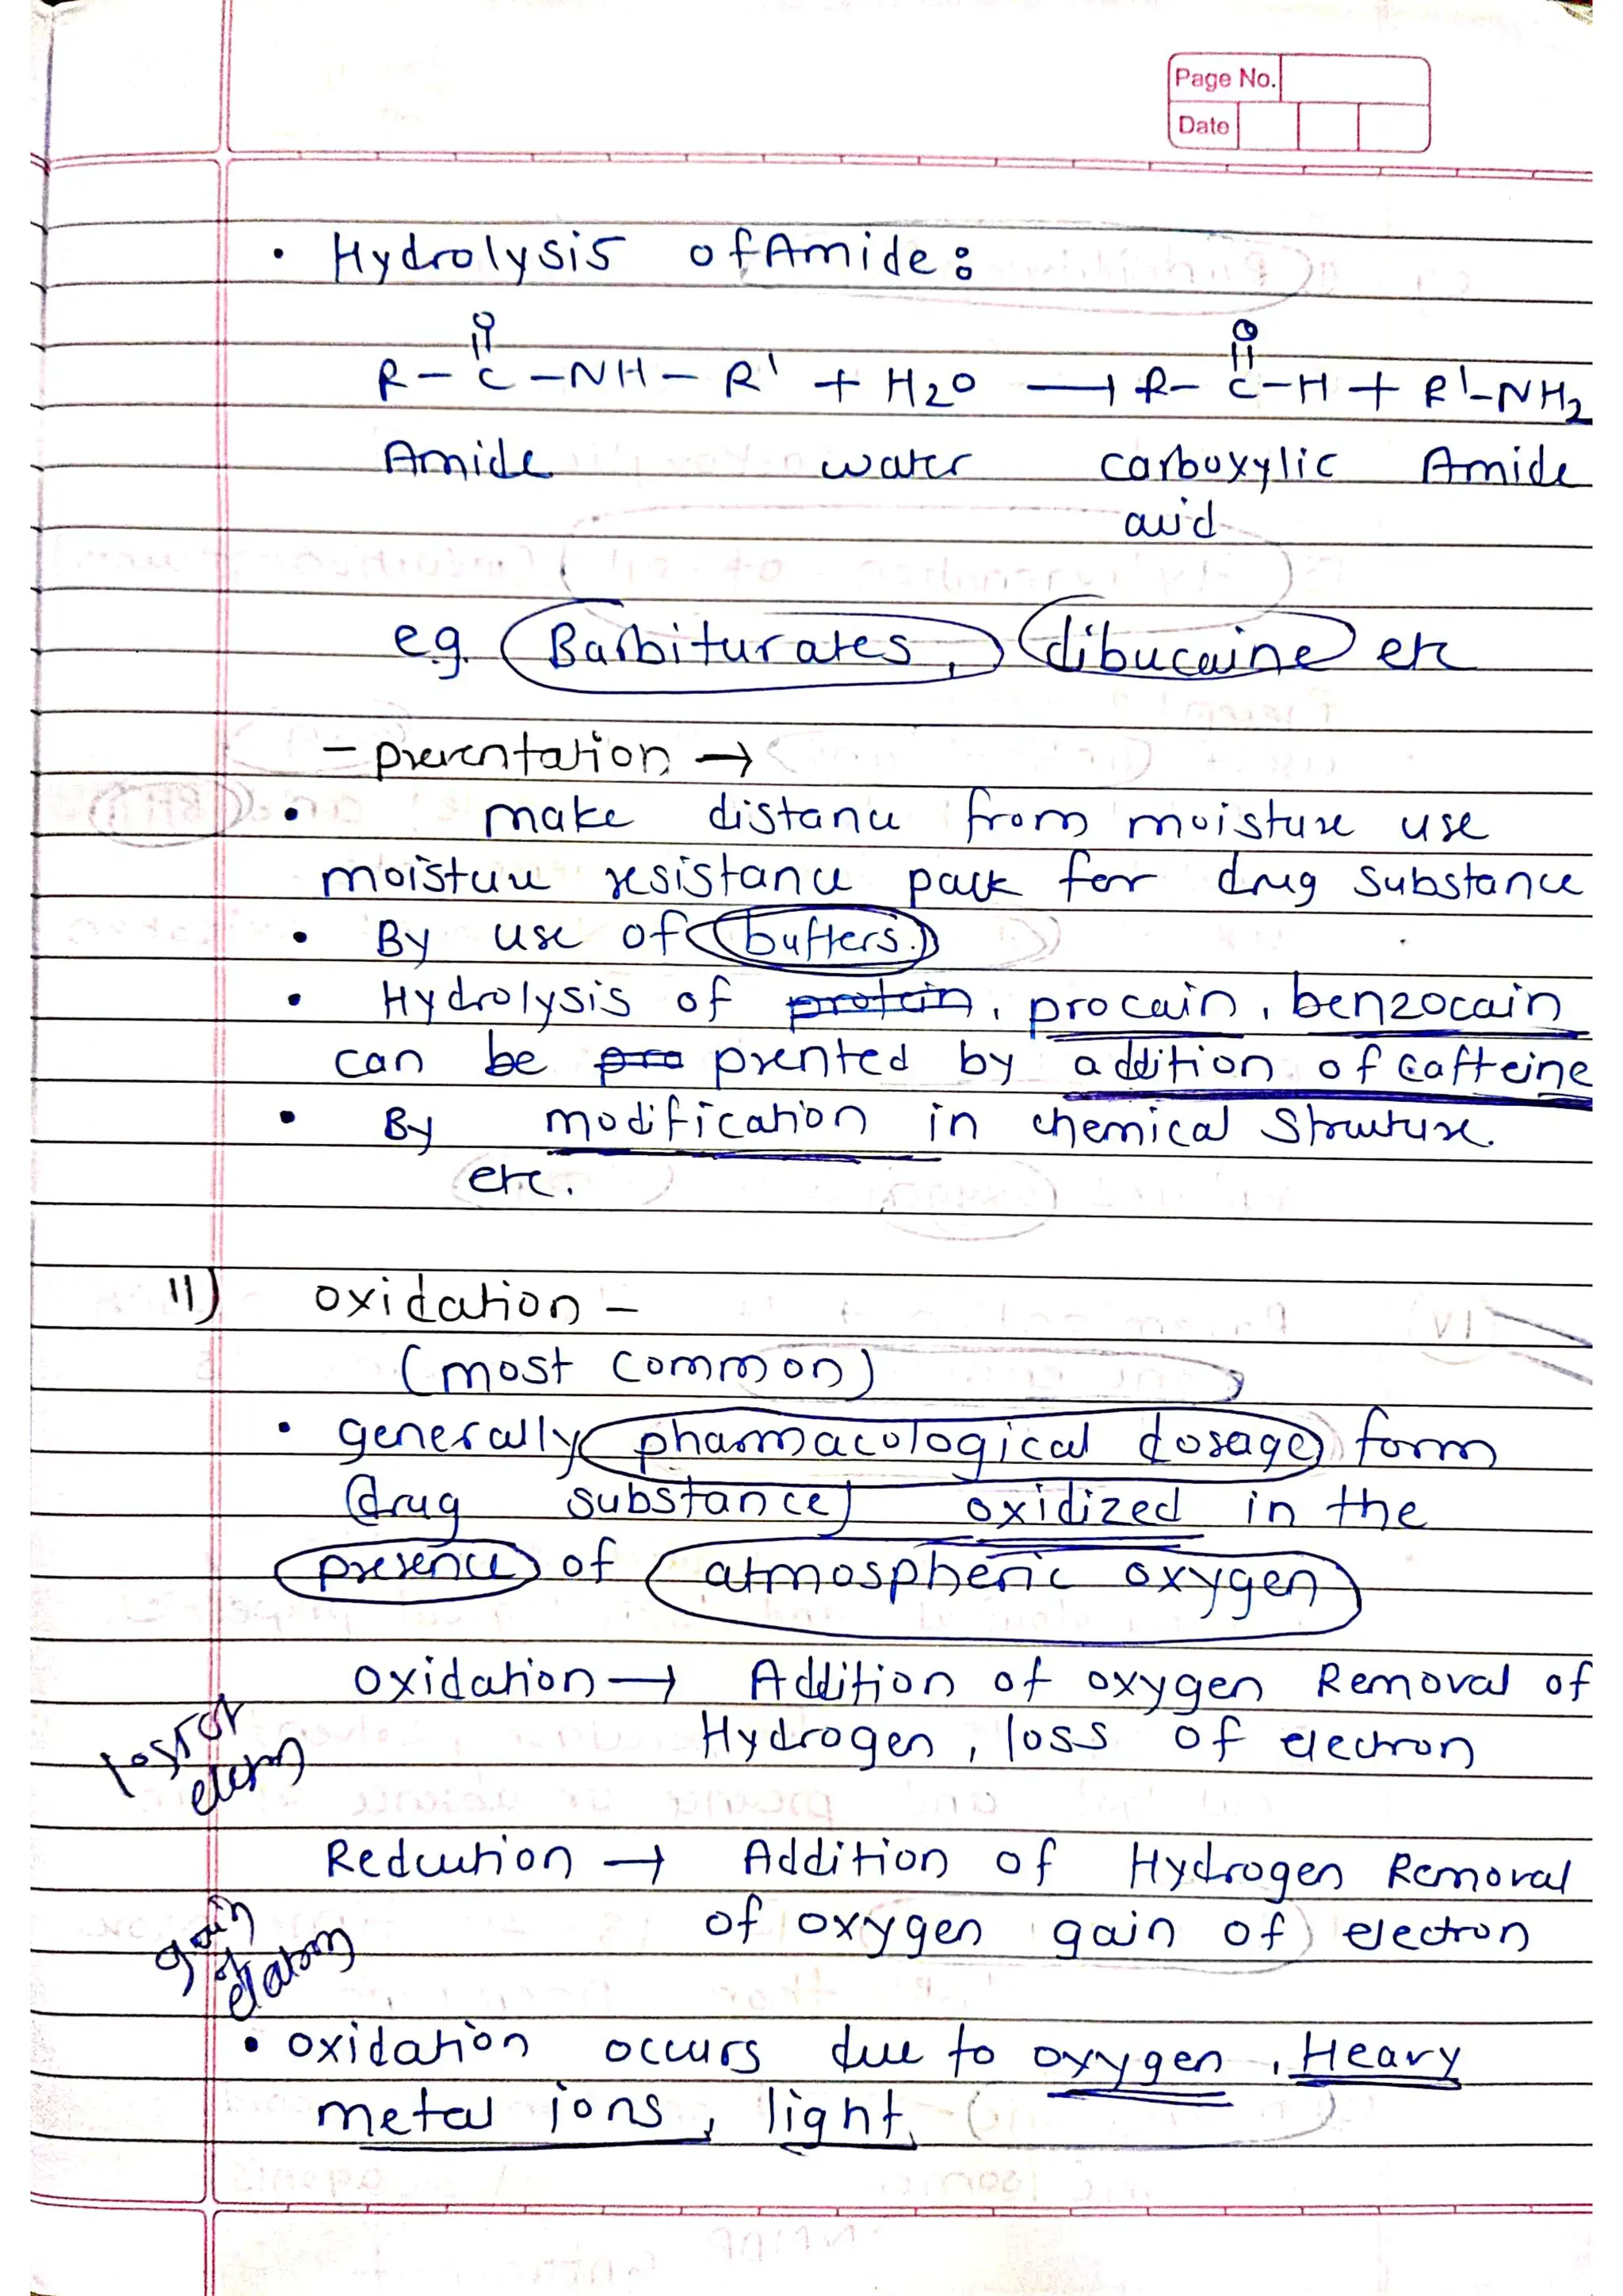 Page No.
Date
• Hydrolysis of Amide :
O O
R – C – NH – R' + H2O → R – C – H + R' – NH2
Amide water carboxylic Amide
acid
e.g. Barbiturates, dibucaine etc
– preventation →
• make distance from moisture use
moisture resistance pack for drug substance
• By use of buffers.
• Hydrolysis of protein, procain, benzocain
can be pro prented by addition of caffeine
• By modification in chemical structure.
etc.
11) oxidation –
(most common)
• generally pharmacological dosage form
(drug substance) oxidized in the
presence of atmospheric oxygen
oxidation → Addition of oxygen Removal of
Hydrogen, loss of electron
loss of
Reduction → Addition of Hydrogen Removal
of oxygen gain of electron
gain
of
• oxidation occurs due to oxygen, Heavy
metal ions, light,